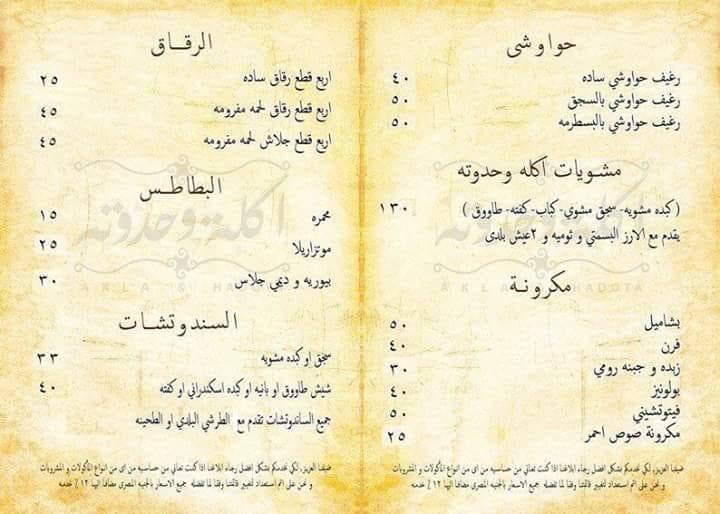 حواوشى
رغيف حواوشي ساده ٤٠
رغيف حواوشي بالسجق ٥٠
رغيف حواوشي بالبسطرمه ٥٠
مشويات اكله وحدوته
( كبده مشويه- سجق مشوي- كباب- كفته- طاووق ) ١٣٠
يقدم مع الارز البسمتي و ثوميه و ٢عيش بلدى
مكرونة
بشاميل ٥٠
فرن ٤٠
زبده و جبنه رومي ٣٠
بولونيز ٤٠
فيتوتشيني ٥٠
مكرونة صوص احمر ٢٥
ضيفنا العزيز, لكي نخدمكم بشكل افضل رجاء ابلاغنا اذا كنت تعاني من حساسيه من اى من انواع المأكولات و المشروبات
و نحن على اتم استعداد لتغيير قائمتنا وفقا لما تفضله جميع الاسعار بالجنيه المصرى مضافا اليها ١٢ ٪ خدمه
الرقاق
اربع قطع رقاق ساده ٢٥
اربع قطع رقاق لحمه مفرومه ٤٥
اربع قطع جلاش لحمه مفرومه ٤٥
البطاطس
محمره ١٥
موتزاريلا ٢٥
بيوريه و ديمي جلاس ٣٠
السندوتشات
سجق او كبده مشويه ٣٣
شيش طاووق او بانيه او كبده اسكندراني او كفته ٤٠
جميع الساندوتشات تقدم مع الطرشي البلدي او الطحينه
ضيفنا العزيز, لكي نخدمكم بشكل افضل رجاء ابلاغنا اذا كنت تعاني من حساسيه من اى من انواع المأكولات و المشروبات
و نحن على اتم استعداد لتغيير قائمتنا وفقا لما تفضله جميع الاسعار بالجنيه المصرى مضافا اليها ١٢ ٪ خدمه
اكلة وحدوته